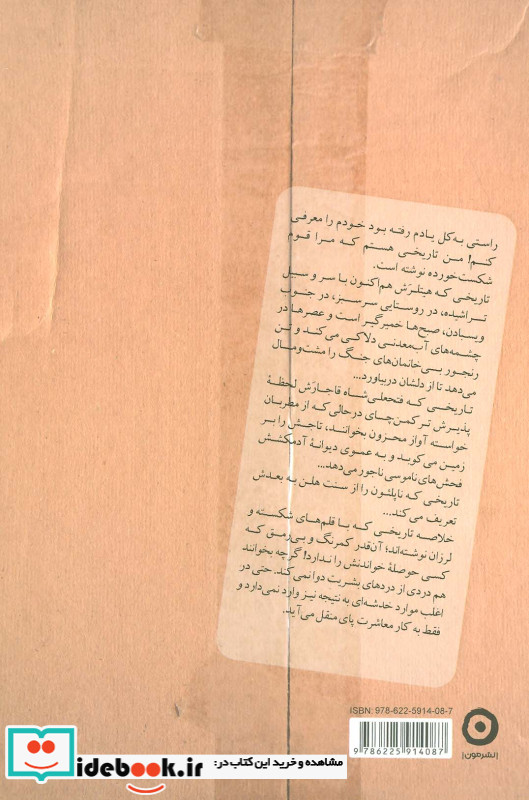 راستی به‌کل یادم رفته بود خودم را معرفی
کنم! من تاریخی هستم که مرا قوم
شکست‌خورده نوشته است.
تاریخی که هیتلرش هم‌اکنون با سر و سبیل
تراشیده، در روستایی سرسبز، در جنوب
ویسبادن، صبح‌ها خمیرگیر است و عصرها در
چشمه‌های آب‌معدنی دلاکی می‌کند و تن
رنجور بی‌خانمان‌های جنگ را مشت‌ومال
می‌دهد تا از دلشان دربیاورد...
تاریخی که فتحعلی‌شاه قاجارش لحظهٔ
پذیرش ترکمن‌چای درحالی‌که از مطربان
خواسته آواز محزون بخوانند، تاجش را بر
زمین می‌کوبد و به عموی دیوانهٔ آدمکشش
فحش‌های ناموسی ناجور می‌دهد...
تاریخی که ناپلئون را از سنت هلن به بعدش
تعریف می‌کند...
خلاصه تاریخی که با قلم‌های شکسته و
لرزان نوشته‌اند؛ آن‌قدر کمرنگ و بی‌رمق که
کسی حوصلهٔ خواندنش را ندارد! گرچه بخوانند
هم دردی از دردهای بشریت دوا نمی‌کند. حتی در
اغلب موارد خدشه‌ای به نتیجه نیز وارد نمی‌دارد و
فقط به کار معاشرت پای منقل می‌آید.
ISBN: 978-622-5914-08-7
9 786225 914087
|نشرمون|
idebook.ir
مشاهده و خرید این کتاب در: